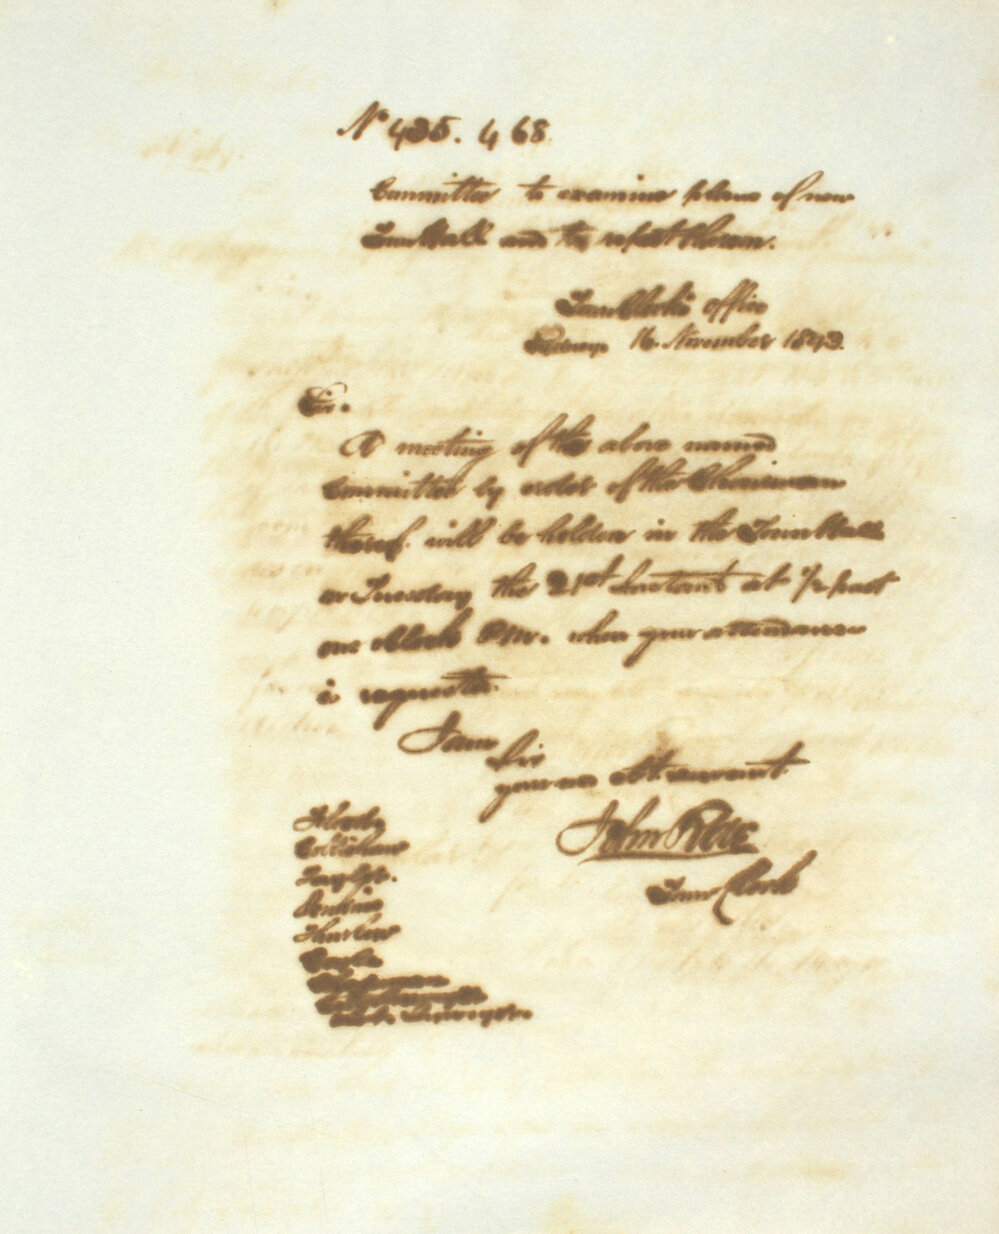 No 435. 468.
Committee to examine plans of new
Town Hall and to report thereon.
Town Clerk's Office
Sydney 16. November 1843.
Sir.
A meeting of the above named
Committee by order of the Chairman
thereof. will be holden in the Town Hall
on Tuesday the 21st Instant at 1/2 past
one oClock P.M. when your attendance
is requested.
I am
Sir
your obt. servant.
John Rae
Town Clerk
Flood
Taylor.
Thurlow
City Surveyor.